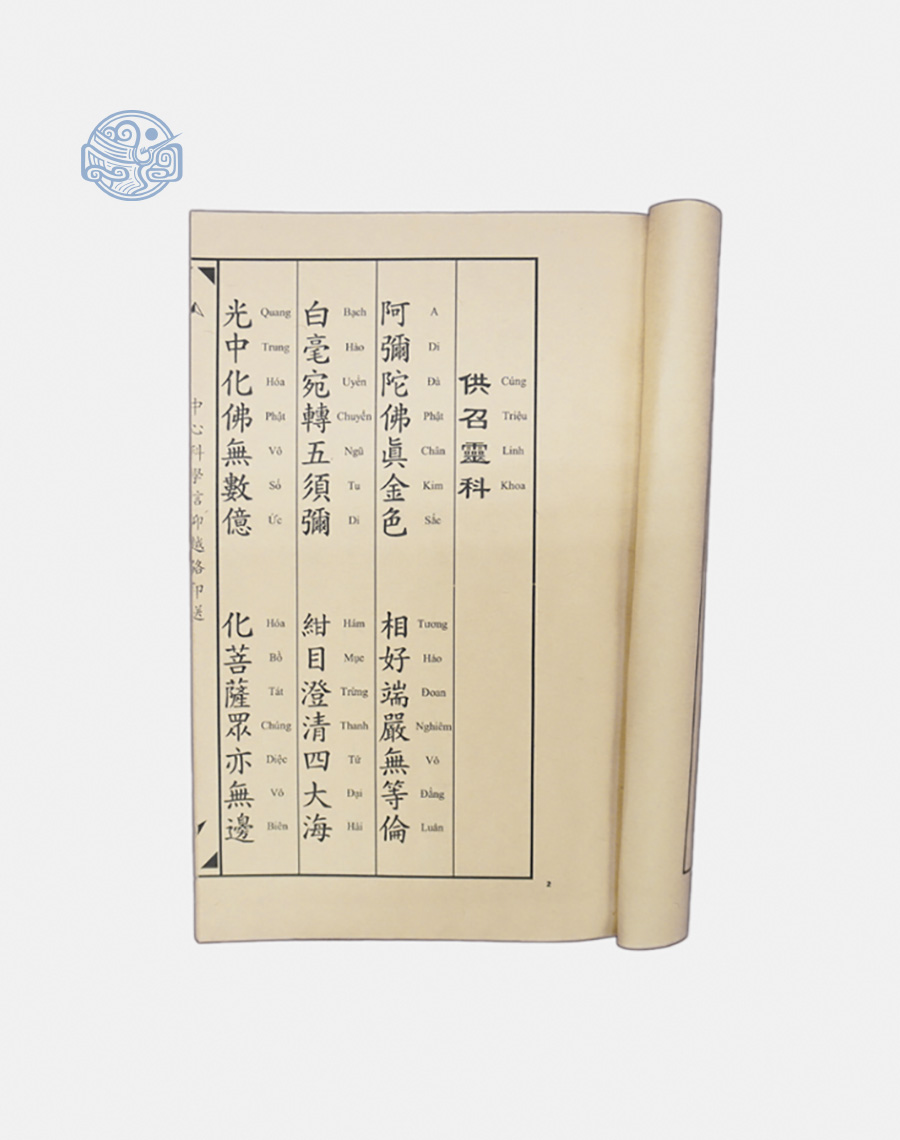 供召靈科
Cúng Triệu Linh Khoa
阿彌陀佛眞金色
A Di Đà Phật Chân Kim Sắc
相好端嚴無等倫
Tương Hảo Đoan Nghiêm Vô Đẳng Luân
白毫宛轉五須彌
Bạch Hào Uyển Chuyển Ngũ Tu Di
紺目澄清四大海
Hám Mục Trừng Thanh Tứ Đại Hải
光中化佛無數億
Quang Trung Hóa Phật Vô Số Ức
化菩薩眾亦無邊
Hóa Bồ Tát Chúng Diệc Vô Biên
中心科學
2